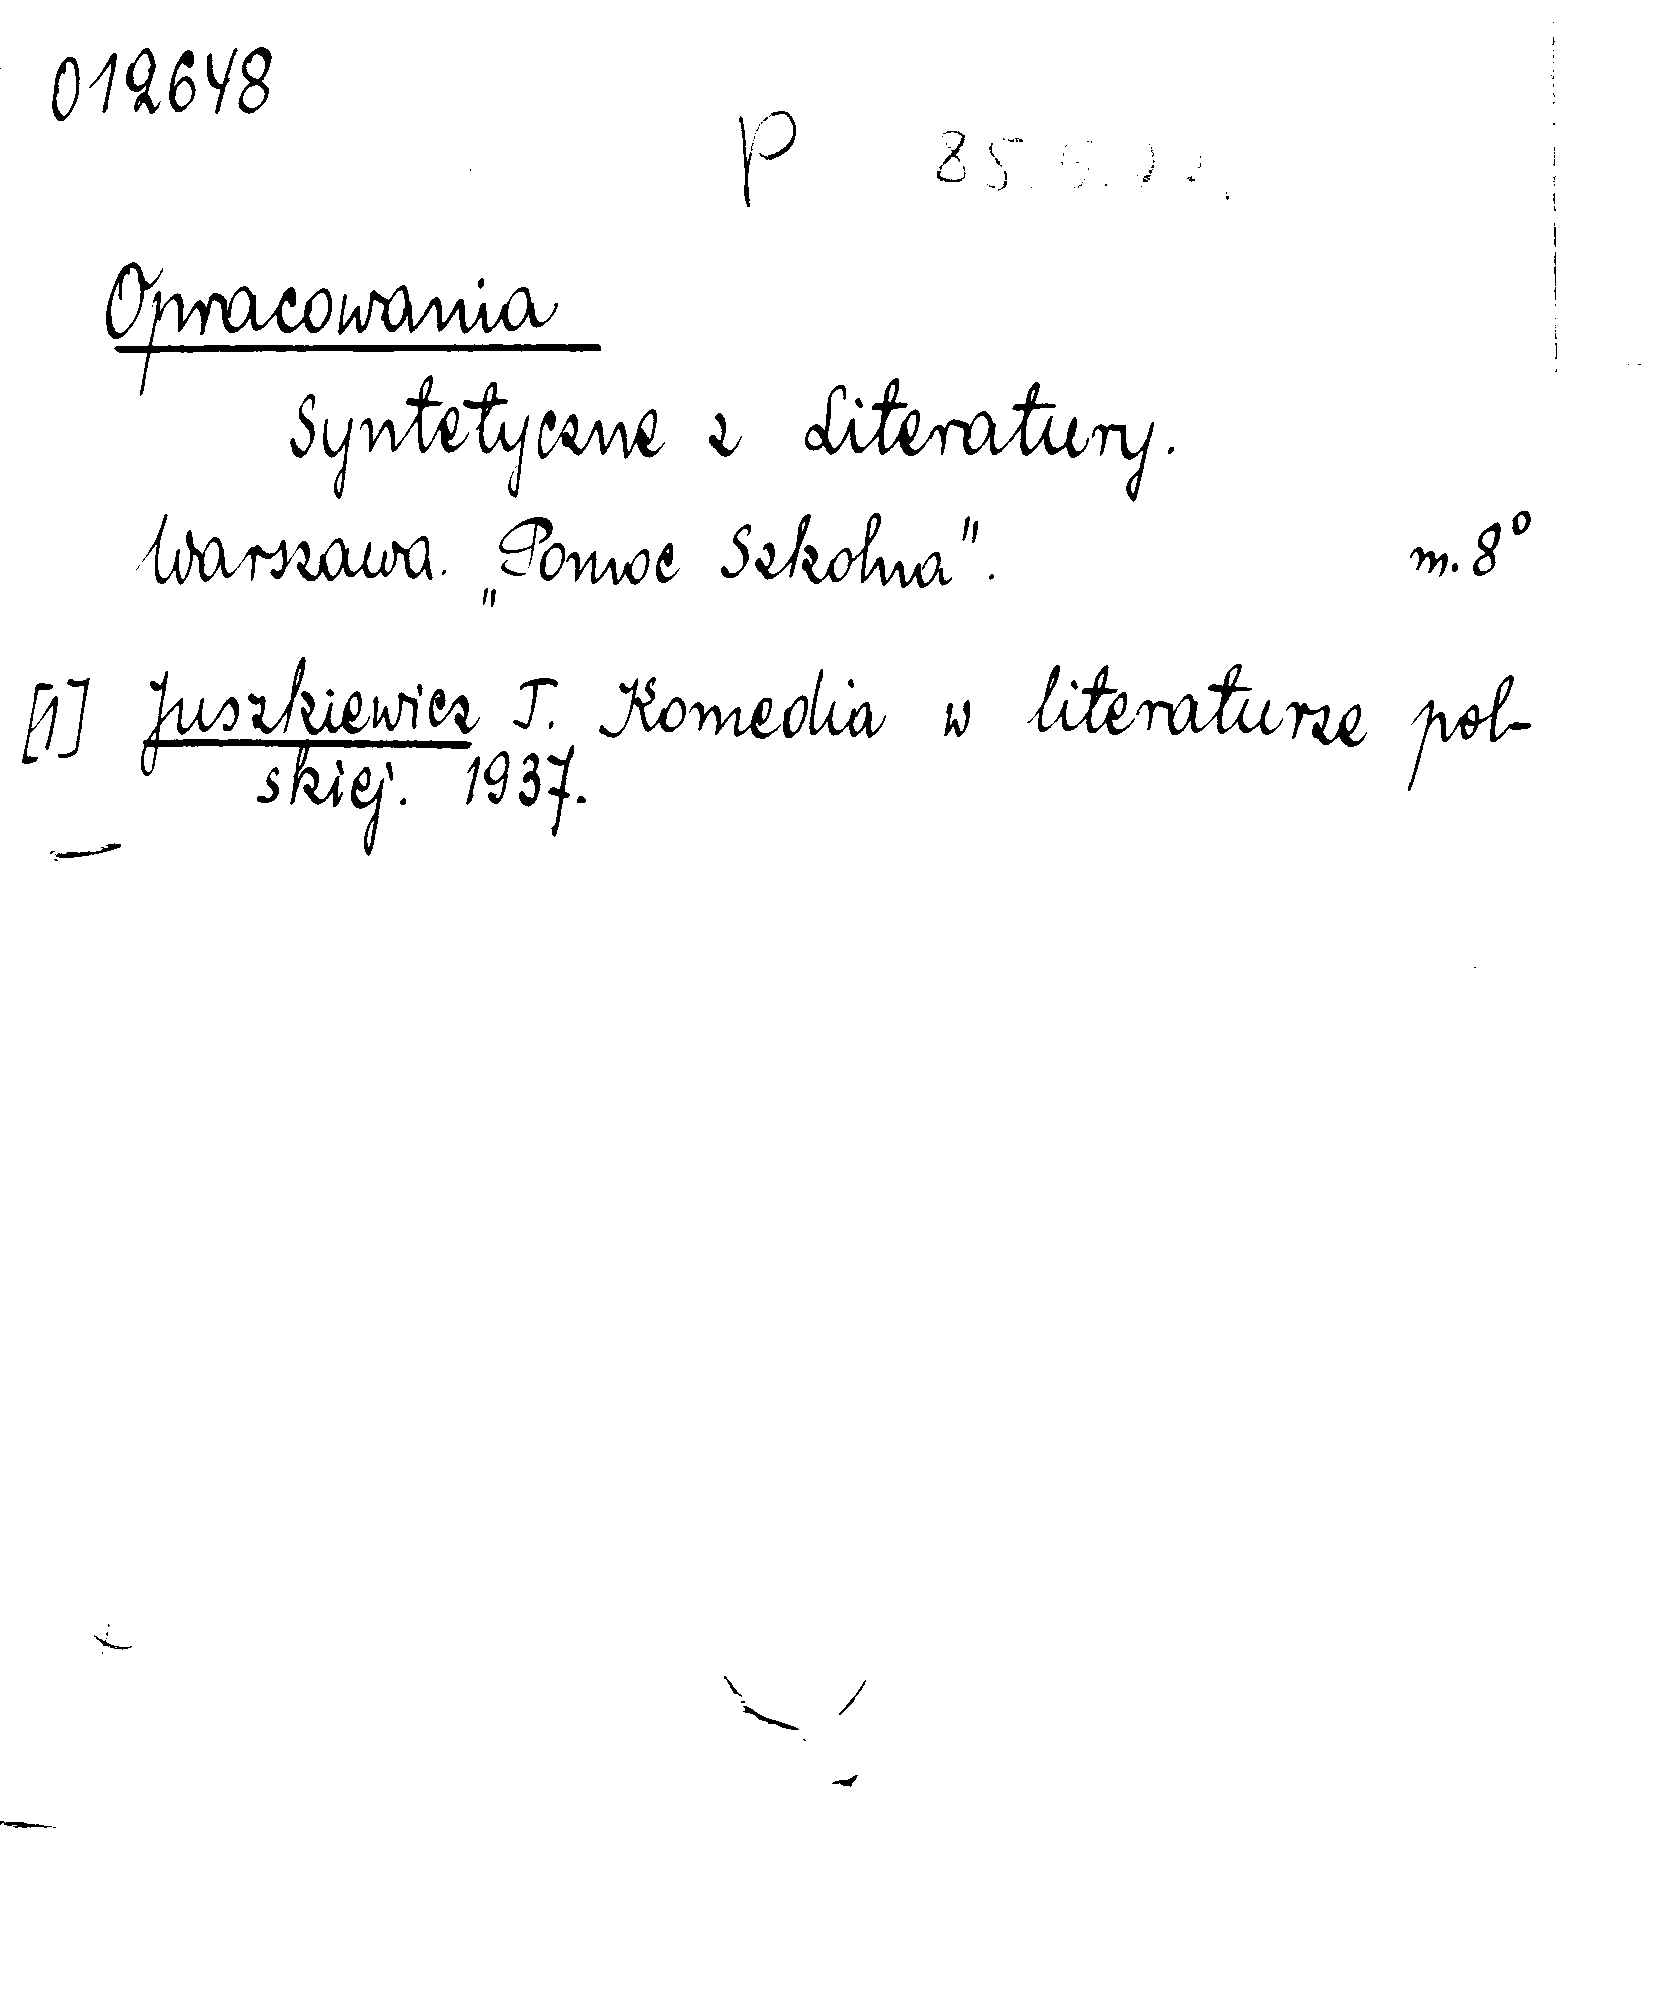 012648
P 85.
Opracowania
Syntetyczne z Literatury.
Warszawa. „Pomoc Szkolna". m. 8°
[1] Juszkiewicz T. Komedia w literaturze pol-
skiej. 1937.